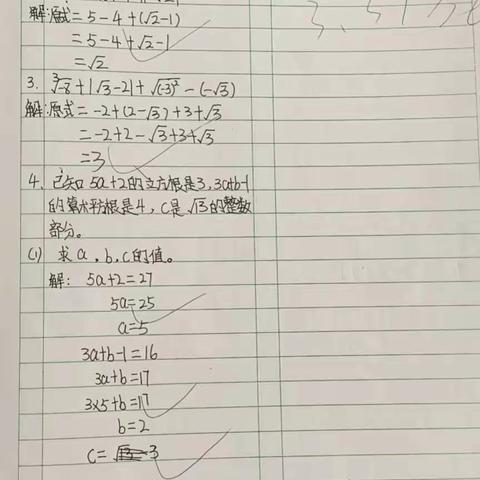 解:原式=5-4+(√2-1)
=5-4+√2-1
=√2
3. ∛-8+|√3-2|+√(-3)²-(-√3)
解:原式=-2+(2-√3)+3+√3
=-2+2-√3+3+√3
=3
4. 已知5a+2的立方根是3,3a+b-1
的算术平方根是4,c是√13的整数
部分。
(1) 求a,b,c的值。
解: 5a+2=27
5a=25
a=5
3a+b-1=16
3a+b=17
3×5+b=17
b=2
c=3